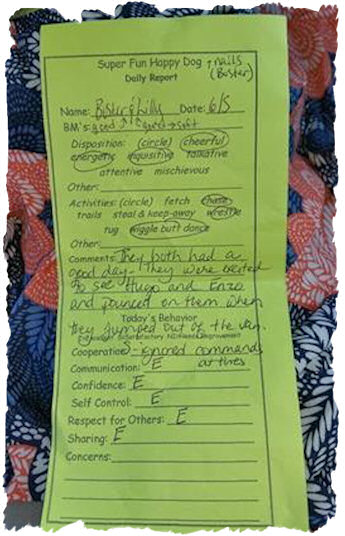 Super Fun Happy Dog + nails
Daily Report (Buster)
Name: Buster & Lilly Date: 6/5
BM's: good good → soft
Disposition: (circle) cheerful
energetic inquisitive talkative
attentive mischievous
Other:
Activities: (circle) fetch chase
trails steal & keep-away wrestle
tug wiggle butt dance
Other:
Comments: They both had a
good day. They were excited
to see Hugo and Enzo
and pounced on them when
Today's Behavior
they jumped out of the van.
E=Excellent S=Satisfactory N=Needs Improvement
Cooperation: - ignored commands
at times
Communication: E
Confidence: E
Self Control: E
Respect for Others: E
Sharing: E
Concerns: